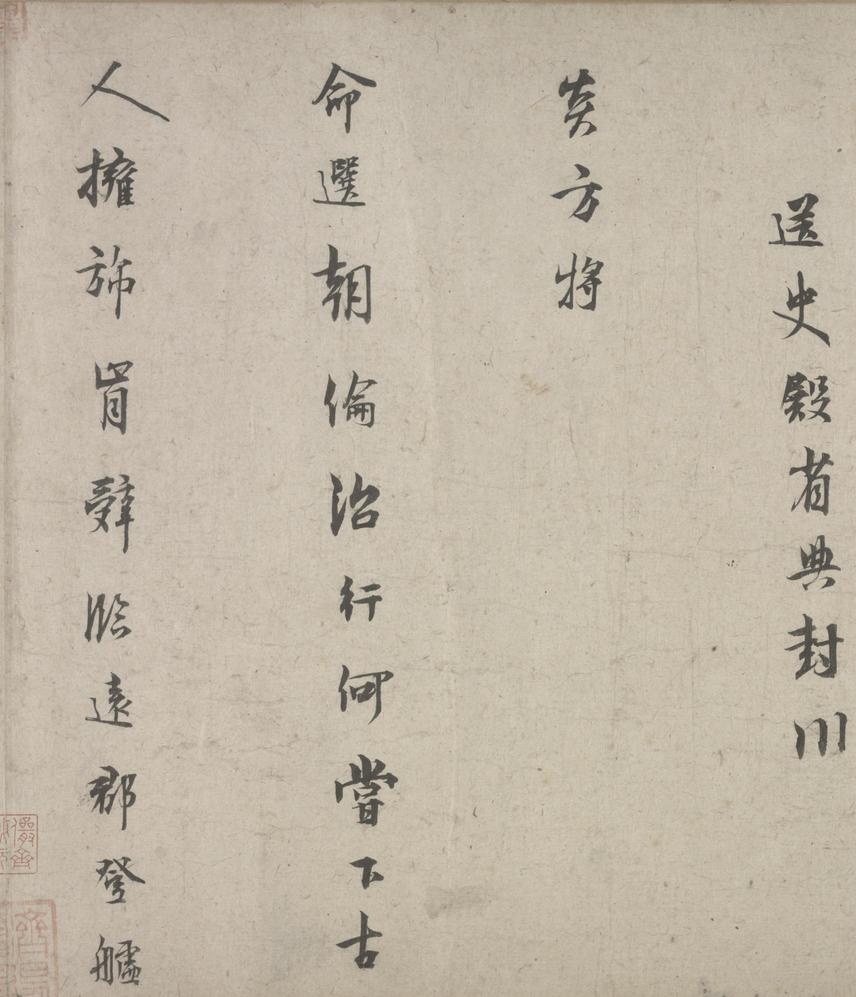 送史殿省典封川
炎方將
命選朝倫治行何嘗下古
人擁旆肯辤臨遠郡登艫